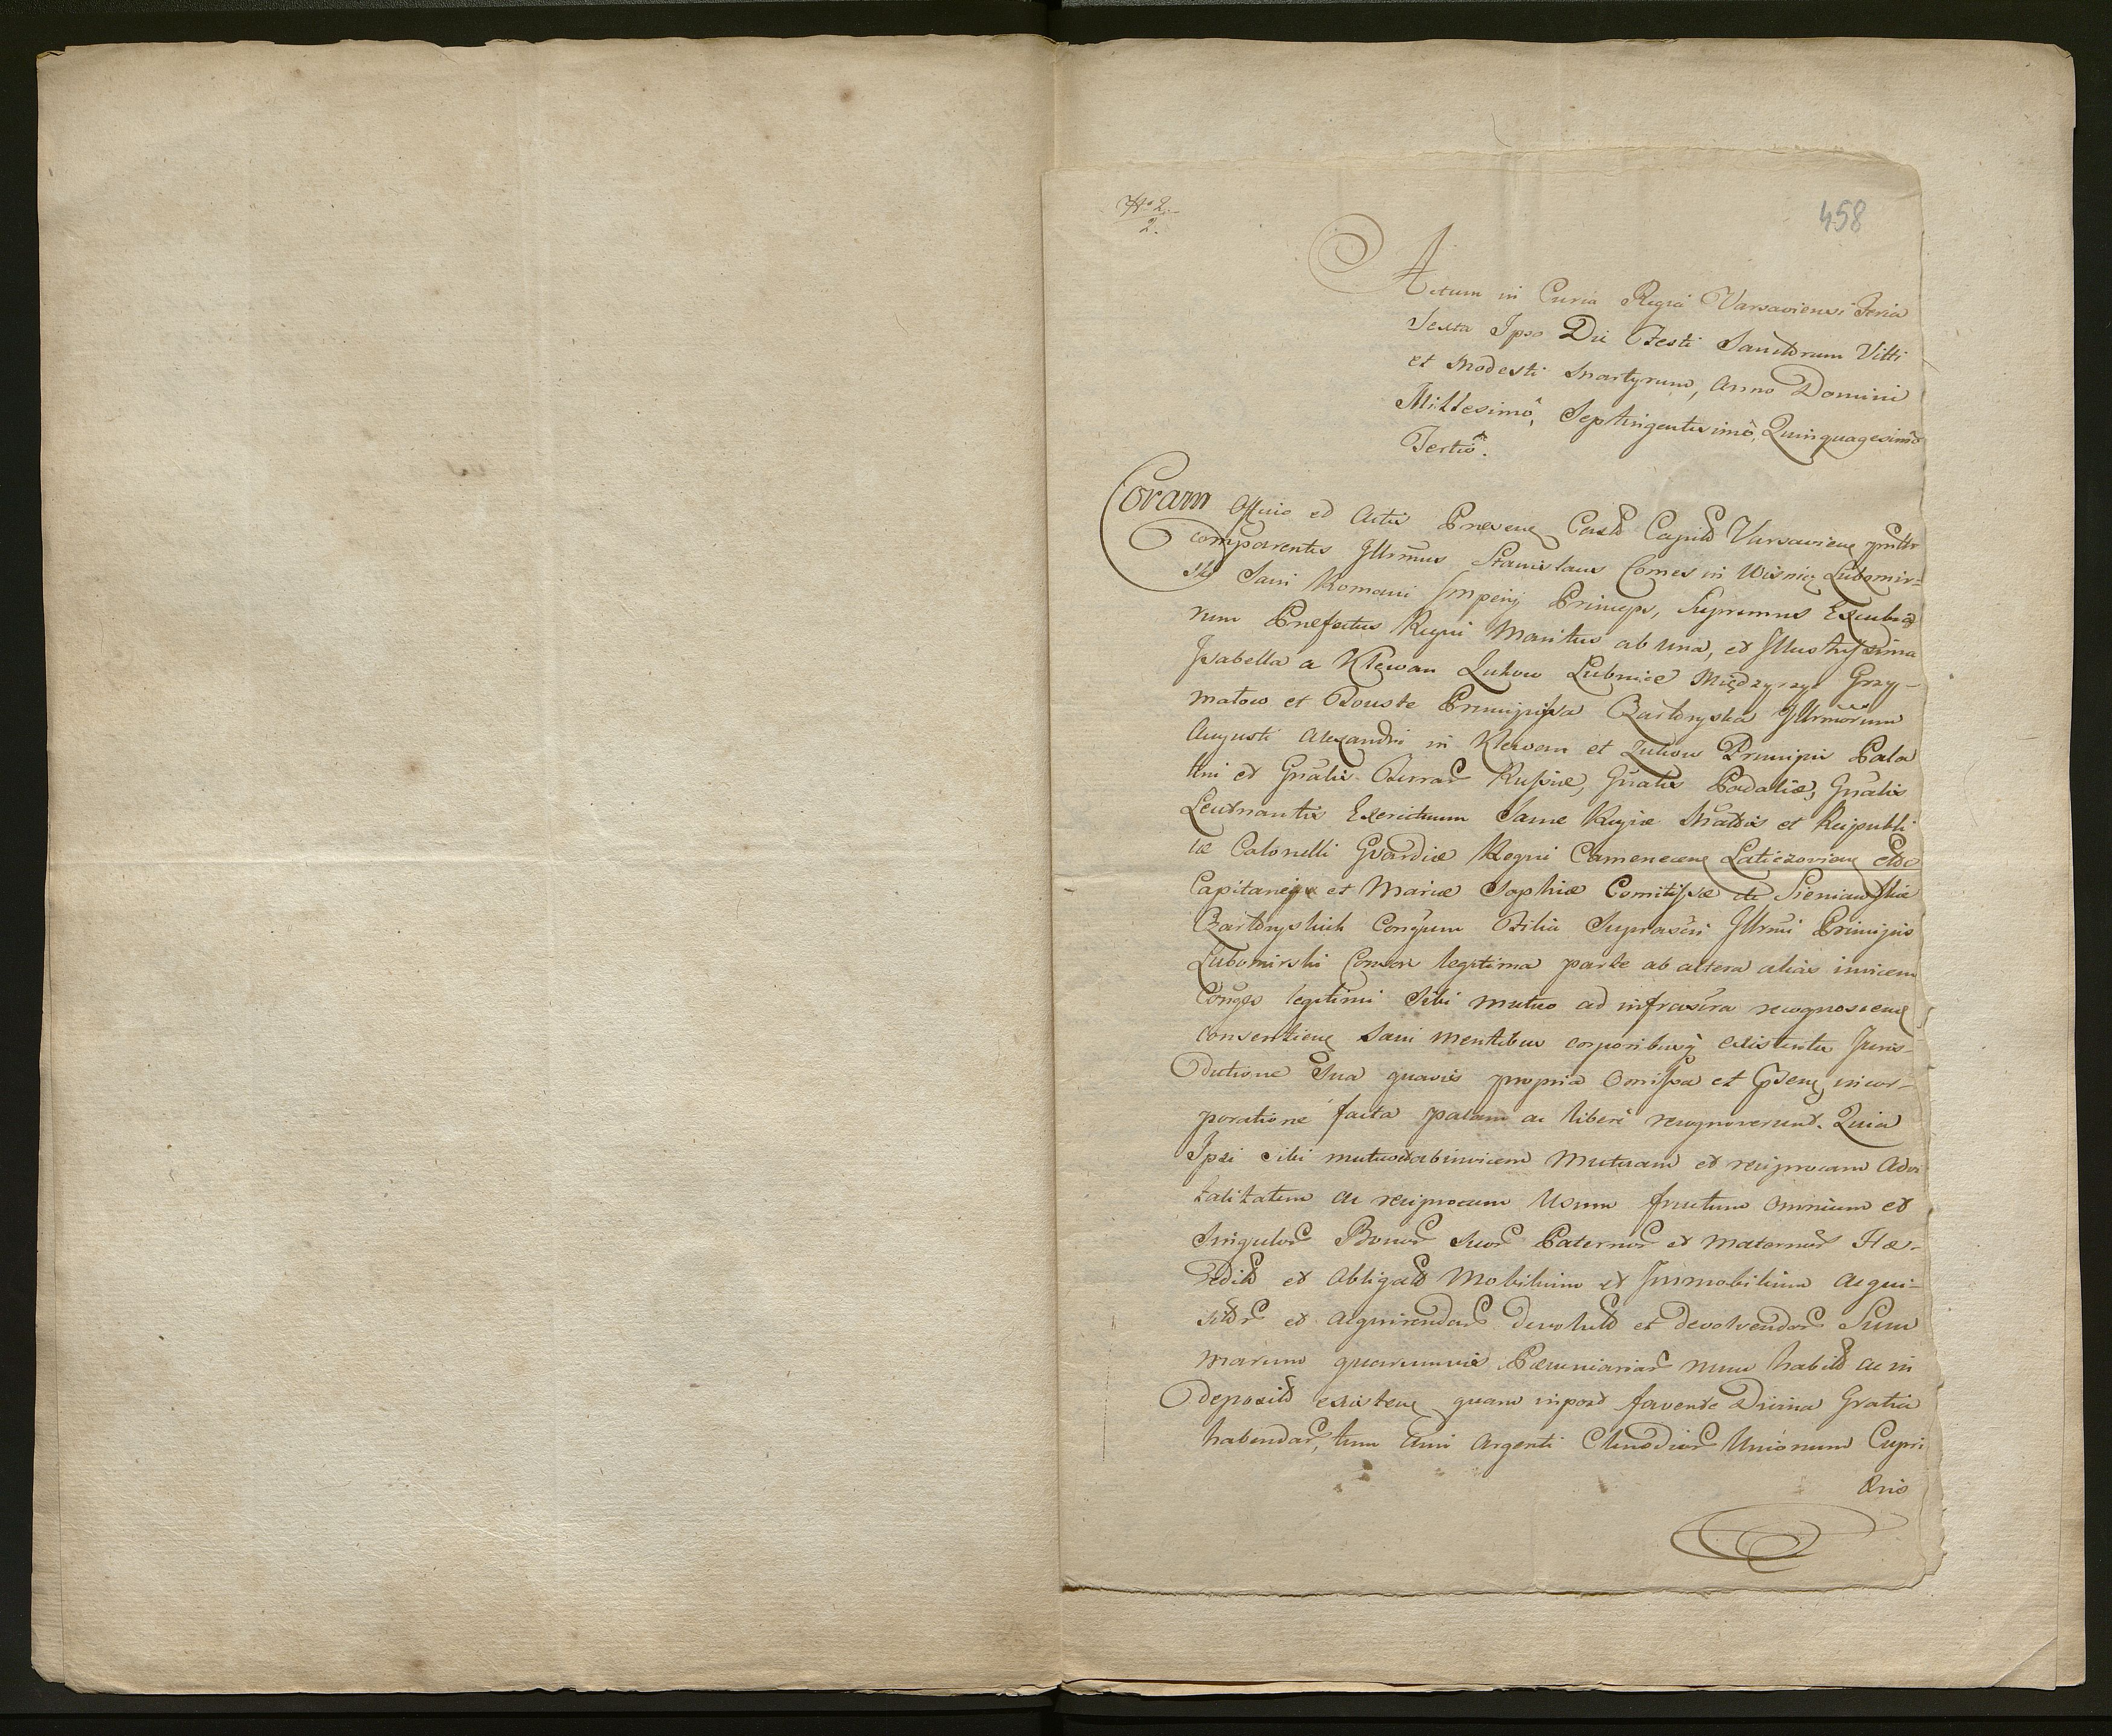 No 2.
2.
458
Actum in Curia Regia Varsaviensi Feria
Sexta Ipso Die Festi Sanctorum Vitti
et Modesti Martyrum, Anno Domini
Millesimô, Septingentesimô, Quinquagesimô
Tertiô.
Coram Officio et Actis Præsen Castr Capitl Varsavien psnlitr
comparentes Illrmus Stanislaus Comes in Wisnicz Lubomir-
ski Sacri Romani Imperij Princeps, Supremus Excubiar
rum Præfectus Regni Maritus ab una, et Illustrissima
Isabella a Klewan Zukow Lubnice Międzyrzyc Grzy-
matow et Douste Principissa Czartoryska Illrmorum
Augusti Alexandri in Klewan et Zukow Principis Pala
tini et Gnalis Terrar Russiæ, Gnalis Podoliæ, Gnalis
Leutnantis Exercituum Sacræ Regiæ Mattis et Reipubli
cæ Colonelli Gvardiæ Regni Camenecen Laticzovien etc
Capitanei et Mariæ Sophiæ Comitissæ de Sieniawskie
Czartoryskich Conjgum Filia Suprascti Illrmi Principis
Lubomirski Consors legitima parte ab altera alias invicem
Conges legitimi Sibi mutuo ad infrascra recognoscen
consentien sani mentibus corporibusq existentes Juris-
dictione Sua quavis propria omissa et Præsen incor-
poratione facta palam ac liberè recognoverunt. Quia
Ipsi sibi mutuo et abinvicem Mutuam et reciprocam Advi
talitatem ac reciprocum Usum fructum omnium et
Singulor Bonor Suor Paternor et Maternor Hæ-
redit et obligat Mobilium et Immobilium acqui-
sitor et acquirendor devolut et devolvendor Sum
marum quarumvis Pæcuniariar nunc habit ac in
deposit existen quam inpost favente Divina Gratia
habendar, tum Auri Argenti Clenodior Unionum Cupri
Æris